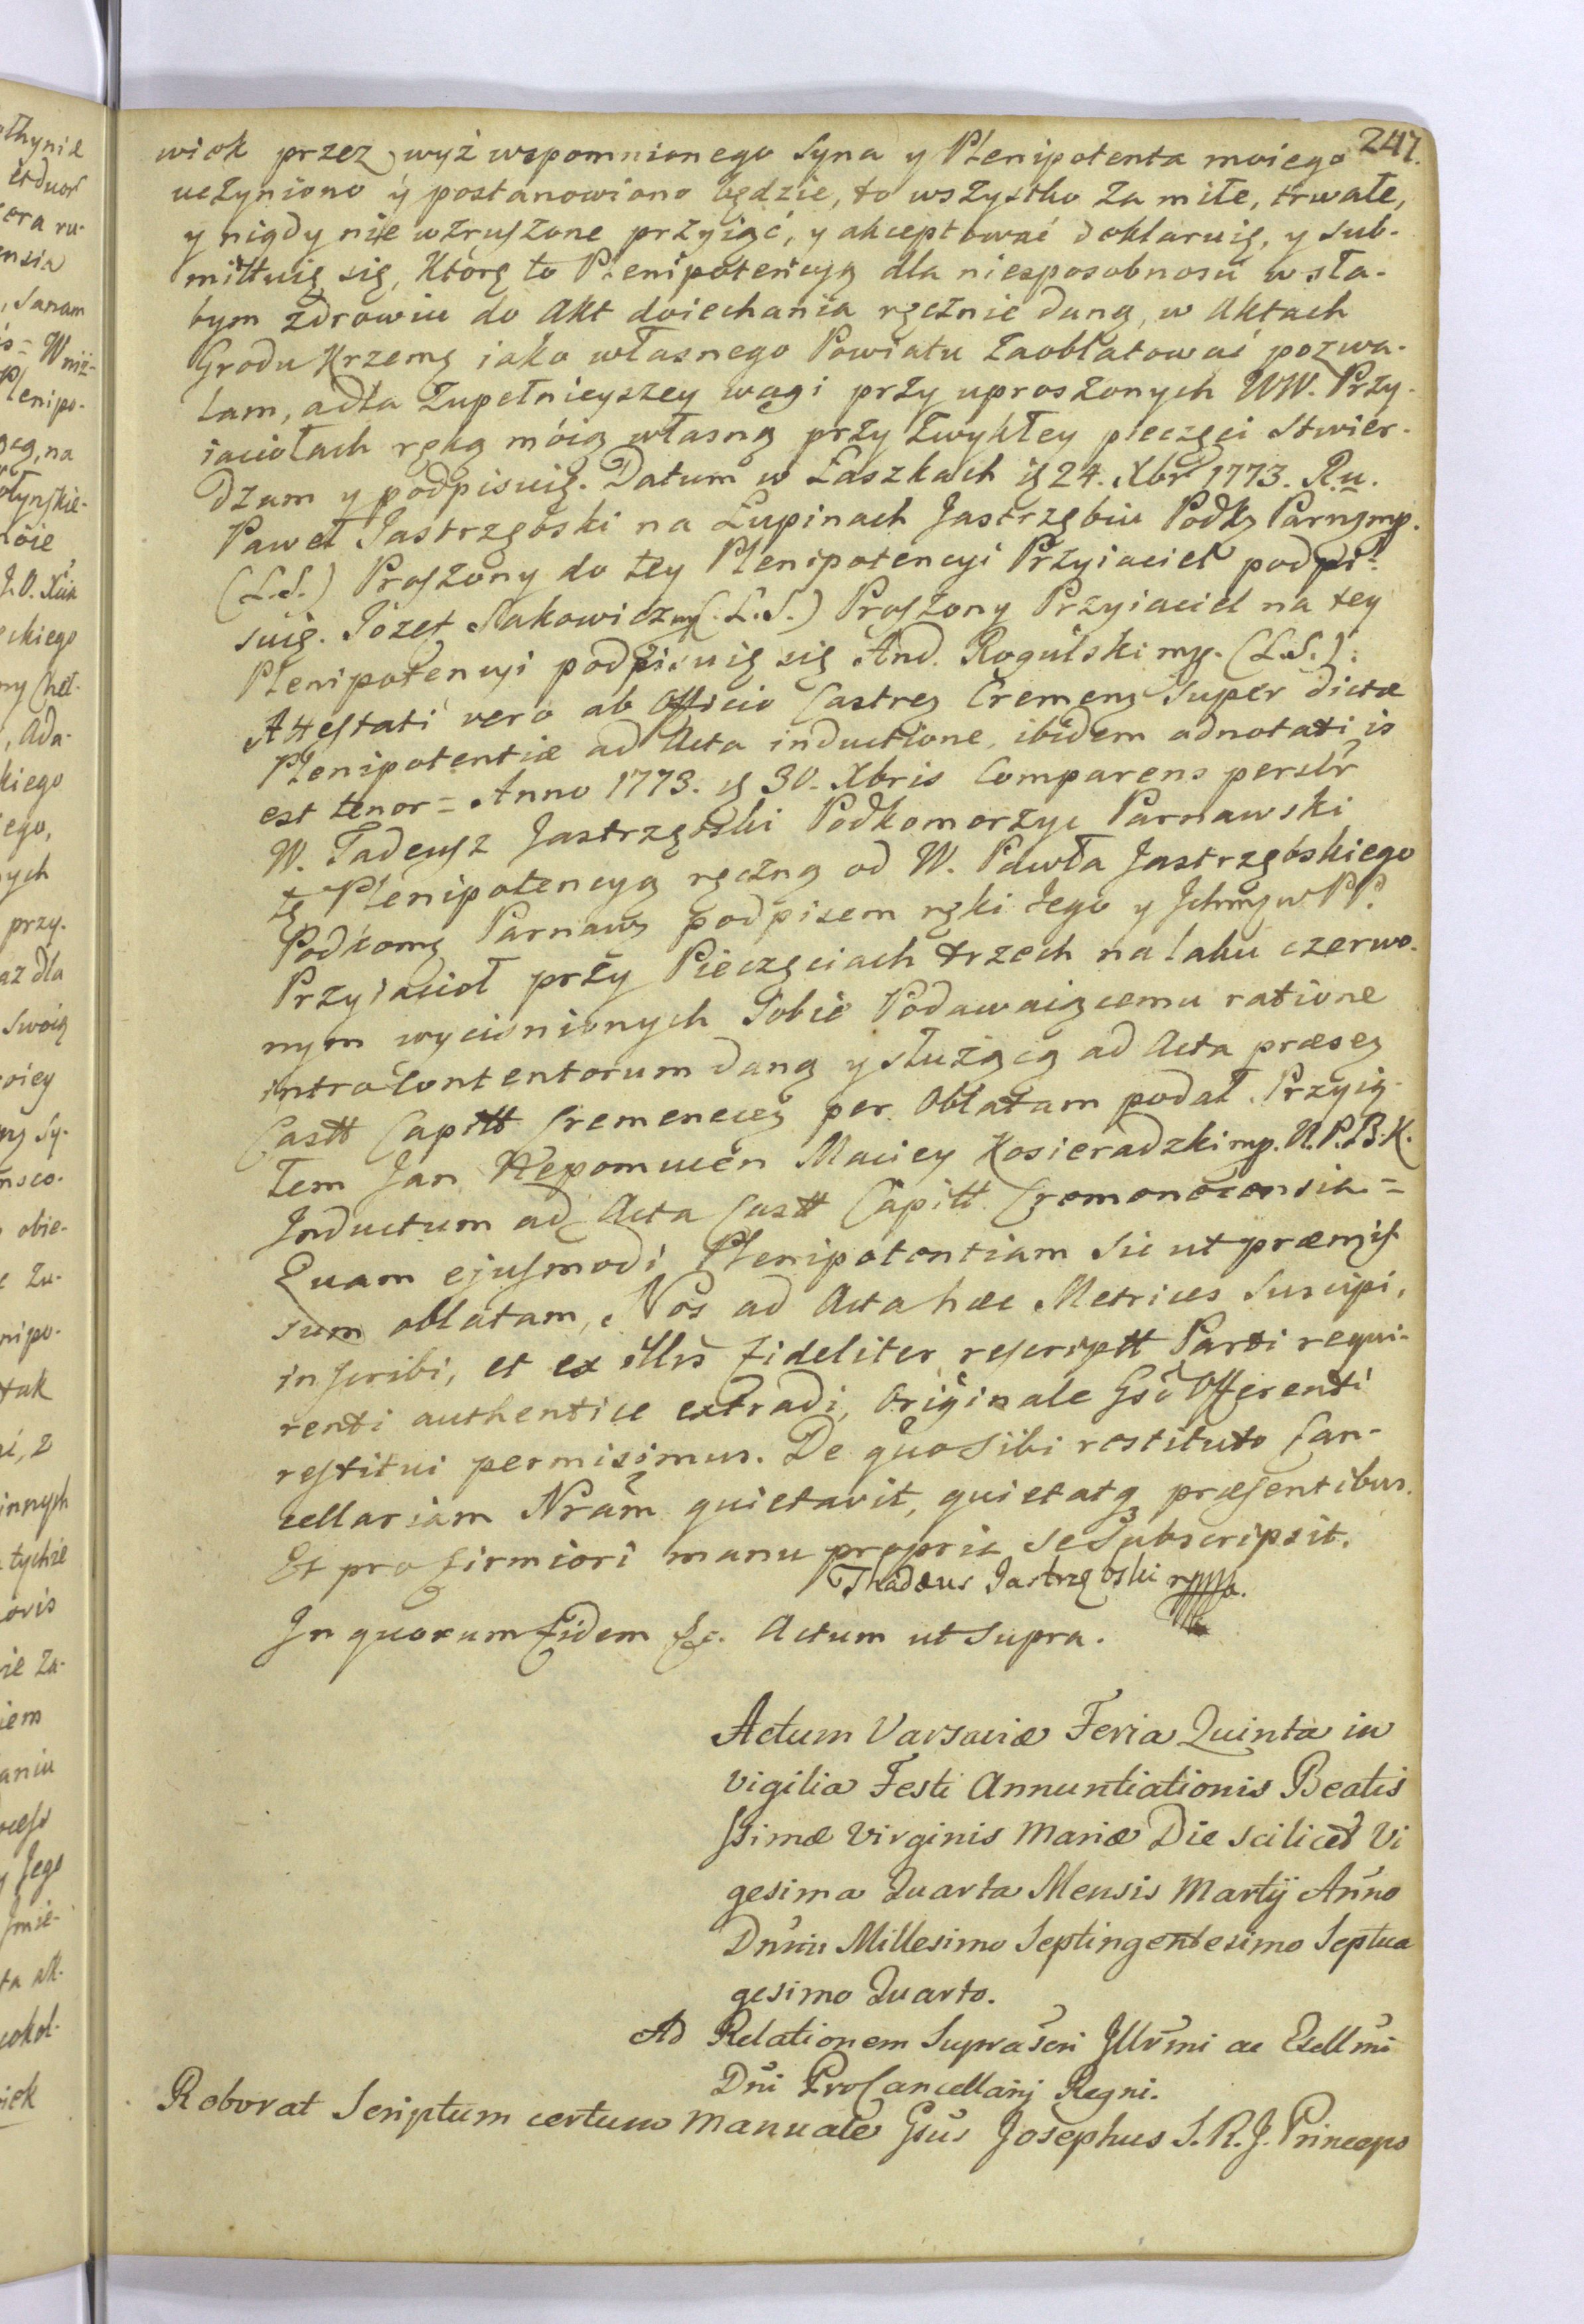 247.
wiek przez wyż wspomnionego Syna y Plenipotenta moiego
uczyniono y postanowiono będzie, to wszystko za miłe, trwałe,
y nigdy nie wzruszone przyiąć, y akceptować deklaruię, y sub-
mittuię się, Którą to Plenipotencyą dla niesposobnosci w sła-
bym zdrowiu do Akt doiechania ręcznie daną, w Aktach
Grodu Krzemę iako własnego Powiatu zaoblatować pozwa-
lam, a dla zupełnieyszey wagi przy uproszonych WW. Przy-
iaciołach ręką móią własną przy zwykłey pieczęci stwier-
dzam y podpisuię. Datum w Laszkach ią 24. Xbr 1773. R.u.
Paweł Jastrzębski na Łupinach Jastrzębiu Podkę Parnę mp.
(L.S.) Proszony do tey Plenipotencyi Przyiaciel podpi-
suię. Józef Sakowicz mp (L.S.) Proszony Przyiaciel na tey
Plenipotencyi podpisuię się And. Rogulski mp. (L.S.):
Attestati vero ab Officio Castreę Cremenę Super dictæ
Plenipotentiæ ad Acta inductione, ibidem adnotati is
est tenor = Anno 1773. ią 30. Xbris Comparens persłr
W. Tadeusz Jastrzębski Podkomorzyc Parnawski
tę Plenipotencyą ręczną od W. Pawła Jastrzębskiego
Podkomę Parnawę podpisem ręki Jego y Jchmę w PP.
Przyiacioł przy Pieczęciach trzech na laku czerwo-
nym wycisnionych Sobie Podawaiącemu ratione
introcontentorum daną y służącą ad Acta præseę
Castt Capitt Cremeneceę per Oblatam podał. Przyią-
łem Jan Nepomucen Maciey Kosieradzki mp. N.P.B.K.
Inductum ad Acta Castt Capitt. Cremenecensia =
Quam ejusmodi Plenipotentiam sic ut præmis-
sum oblatam, Nos ad Acta hæc Metrices Suscipi,
inscribi, et ex illis fideliter rescriptt Parti requi-
renti authentice extradi, Originale Gsō Offerenti
restitui permisimus. De quo sibi restituto Can-
cellariam Nrām quietavit, quietatq præsentibus.
Et pro firmiori manu propria se subscripsit.
Thadæus Jastrzębski
In quorum fidem &c. Actum ut supra.
Actum Varsaviæ Feria Quinta in
vigilia Festi Annuntiationis Beatis
ssimæ Virginis Mariæ Die scilicet Vi
gesima Quarta Mensis Martÿ Anno
Dnni Millesimo Septingentesimo Septua
gesimo Quarto.
Ad Relationem Suprascri Jllrmi ac Excllmi
Dni ProCancellarij Regni.
Roborat Scriptum certum Manuale Gsus Josephus S.R.J. Princeps